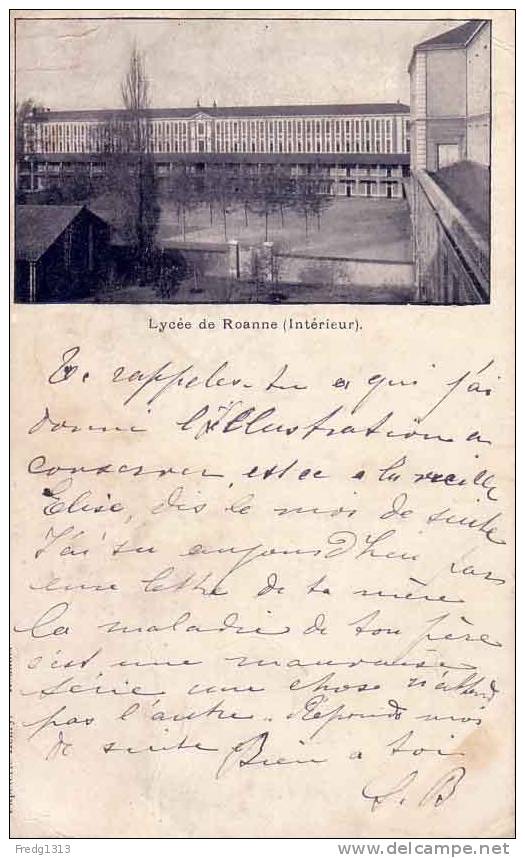 Lycée de Roanne (Intérieur).
Te rappeles-tu a qui j'ai
donné l'Illustration a
conserver, est ce a la vieille
Elise, dis le moi de suite
J'ai su aujourd'hui par
une lettre de ta mère
la maladie de ton père
c'est une mauvaise
série une chose n'attend
pas l'autre. Réponds moi
de suite Bien a toi
S. B
Fredg1313
www.delcampe.net